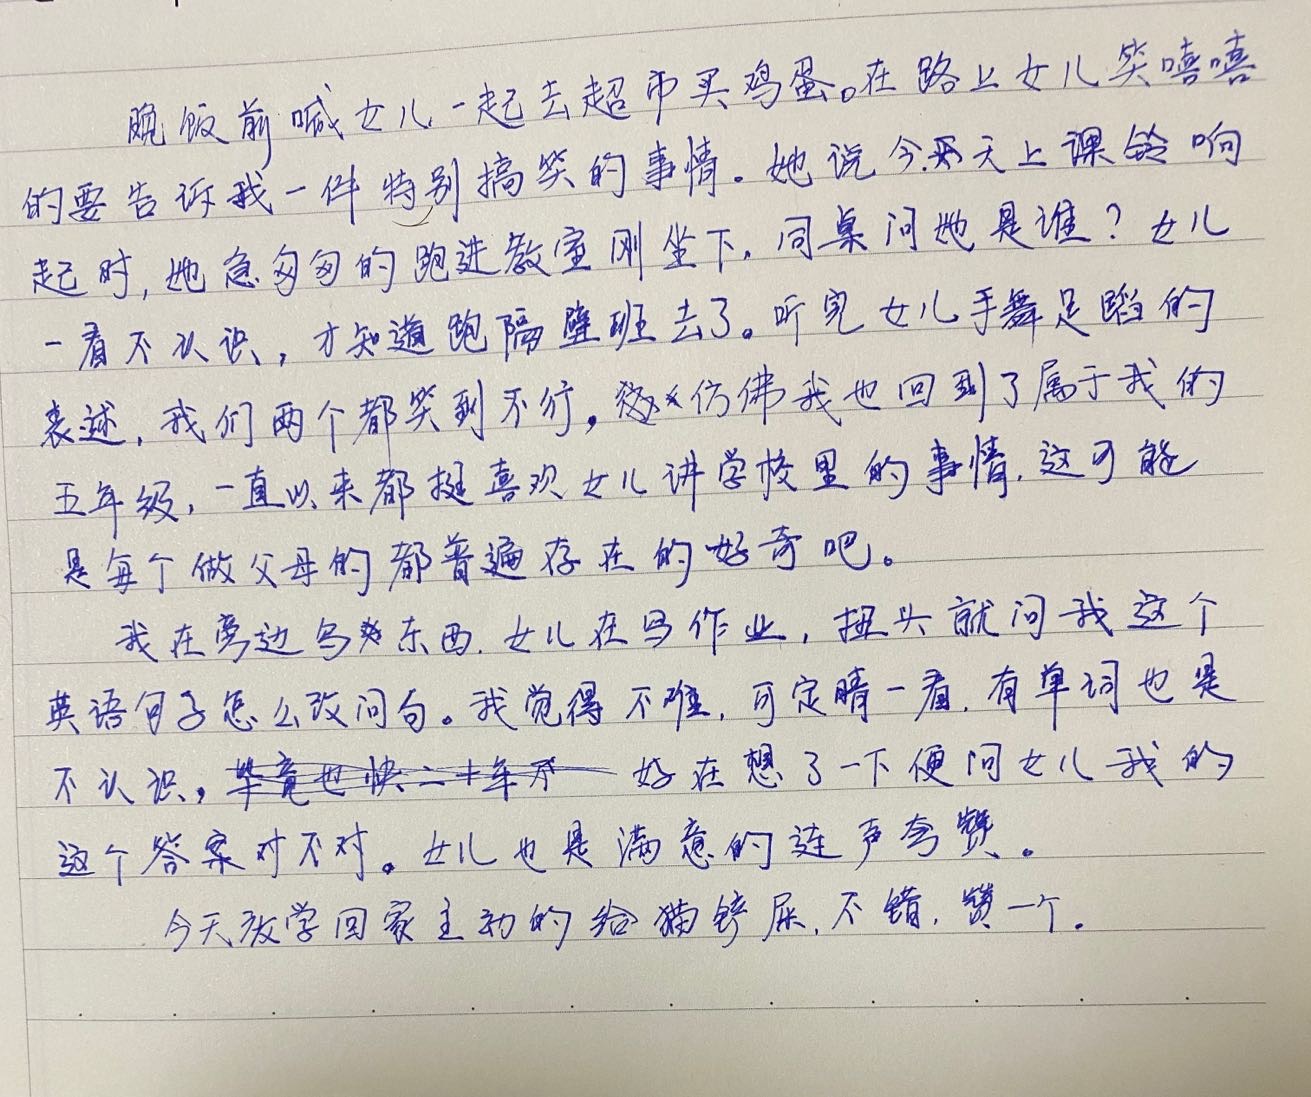 晚饭前喊女儿一起去超市买鸡蛋。在路上女儿笑嘻嘻
的要告诉我一件特别搞笑的事情。她说今天上课铃响
起时,她急匆匆的跑进教室刚坐下,同桌问她是谁?女儿
一看不认识,才知道跑隔壁班去了。听完女儿手舞足蹈的
表述,我们两个都笑到不行。仿佛我也回到了属于我的
五年级,一直以来都挺喜欢女儿讲学校里的事情,这可能
是每个做父母的都普遍存在的好奇吧。
我在旁边写东西,女儿在写作业,扭头就问我这个
英语句子怎么改问句。我觉得不难,可定睛一看,有单词也是
不认识,毕竟也快二十年不 好在想了一下便问女儿我的
这个答案对不对。女儿也是满意的连声夸赞。
今天放学回家主动的给猫铲屎,不错,赞一个.